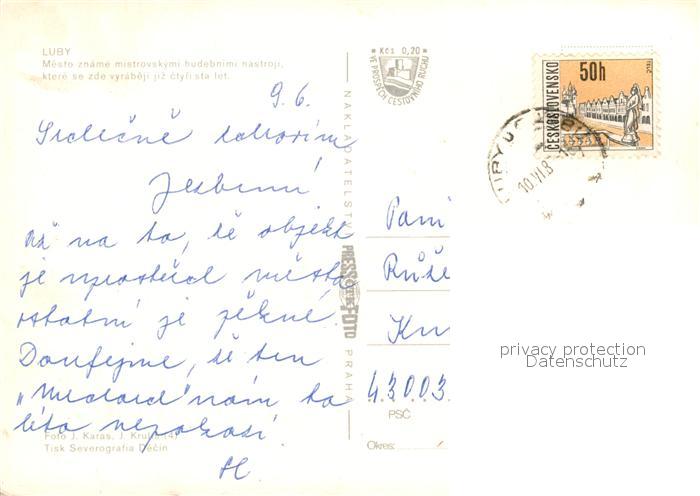 LUBY
Město známé mistrovskými hudebními nástroji,
které se zde vyrábějí již čtyři sta let.
* Kčs 0,20 *
VE PROSPĚCH CESTOVNÍHO RUCHU
50h
ČESKOSLOVENSKO
LUBY U CHEBU
10.VI.8
9.6.
Srdečně zdravím
Až na to, že objekt
je uprostřed města
ostatní je pěkné.
Doufejme, že ten
„Medard" nám to
léto nepokazí.
NAKLADATELSTVÍ
PRESSFOTO
PRAHA
Paní
Růže
Ku
43003
PSČ
Okres:
Foto J. Karas, J. Kruliš (4)
Tisk Severografia Děčín
privacy protection
Datenschutz